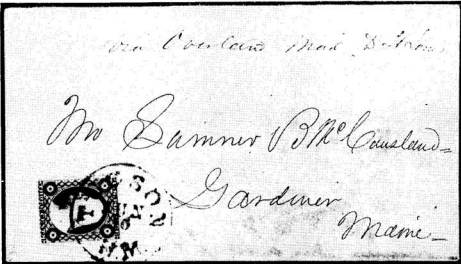 via Overland Mail
Mr Sumner B McCausland
Gardiner
Maine